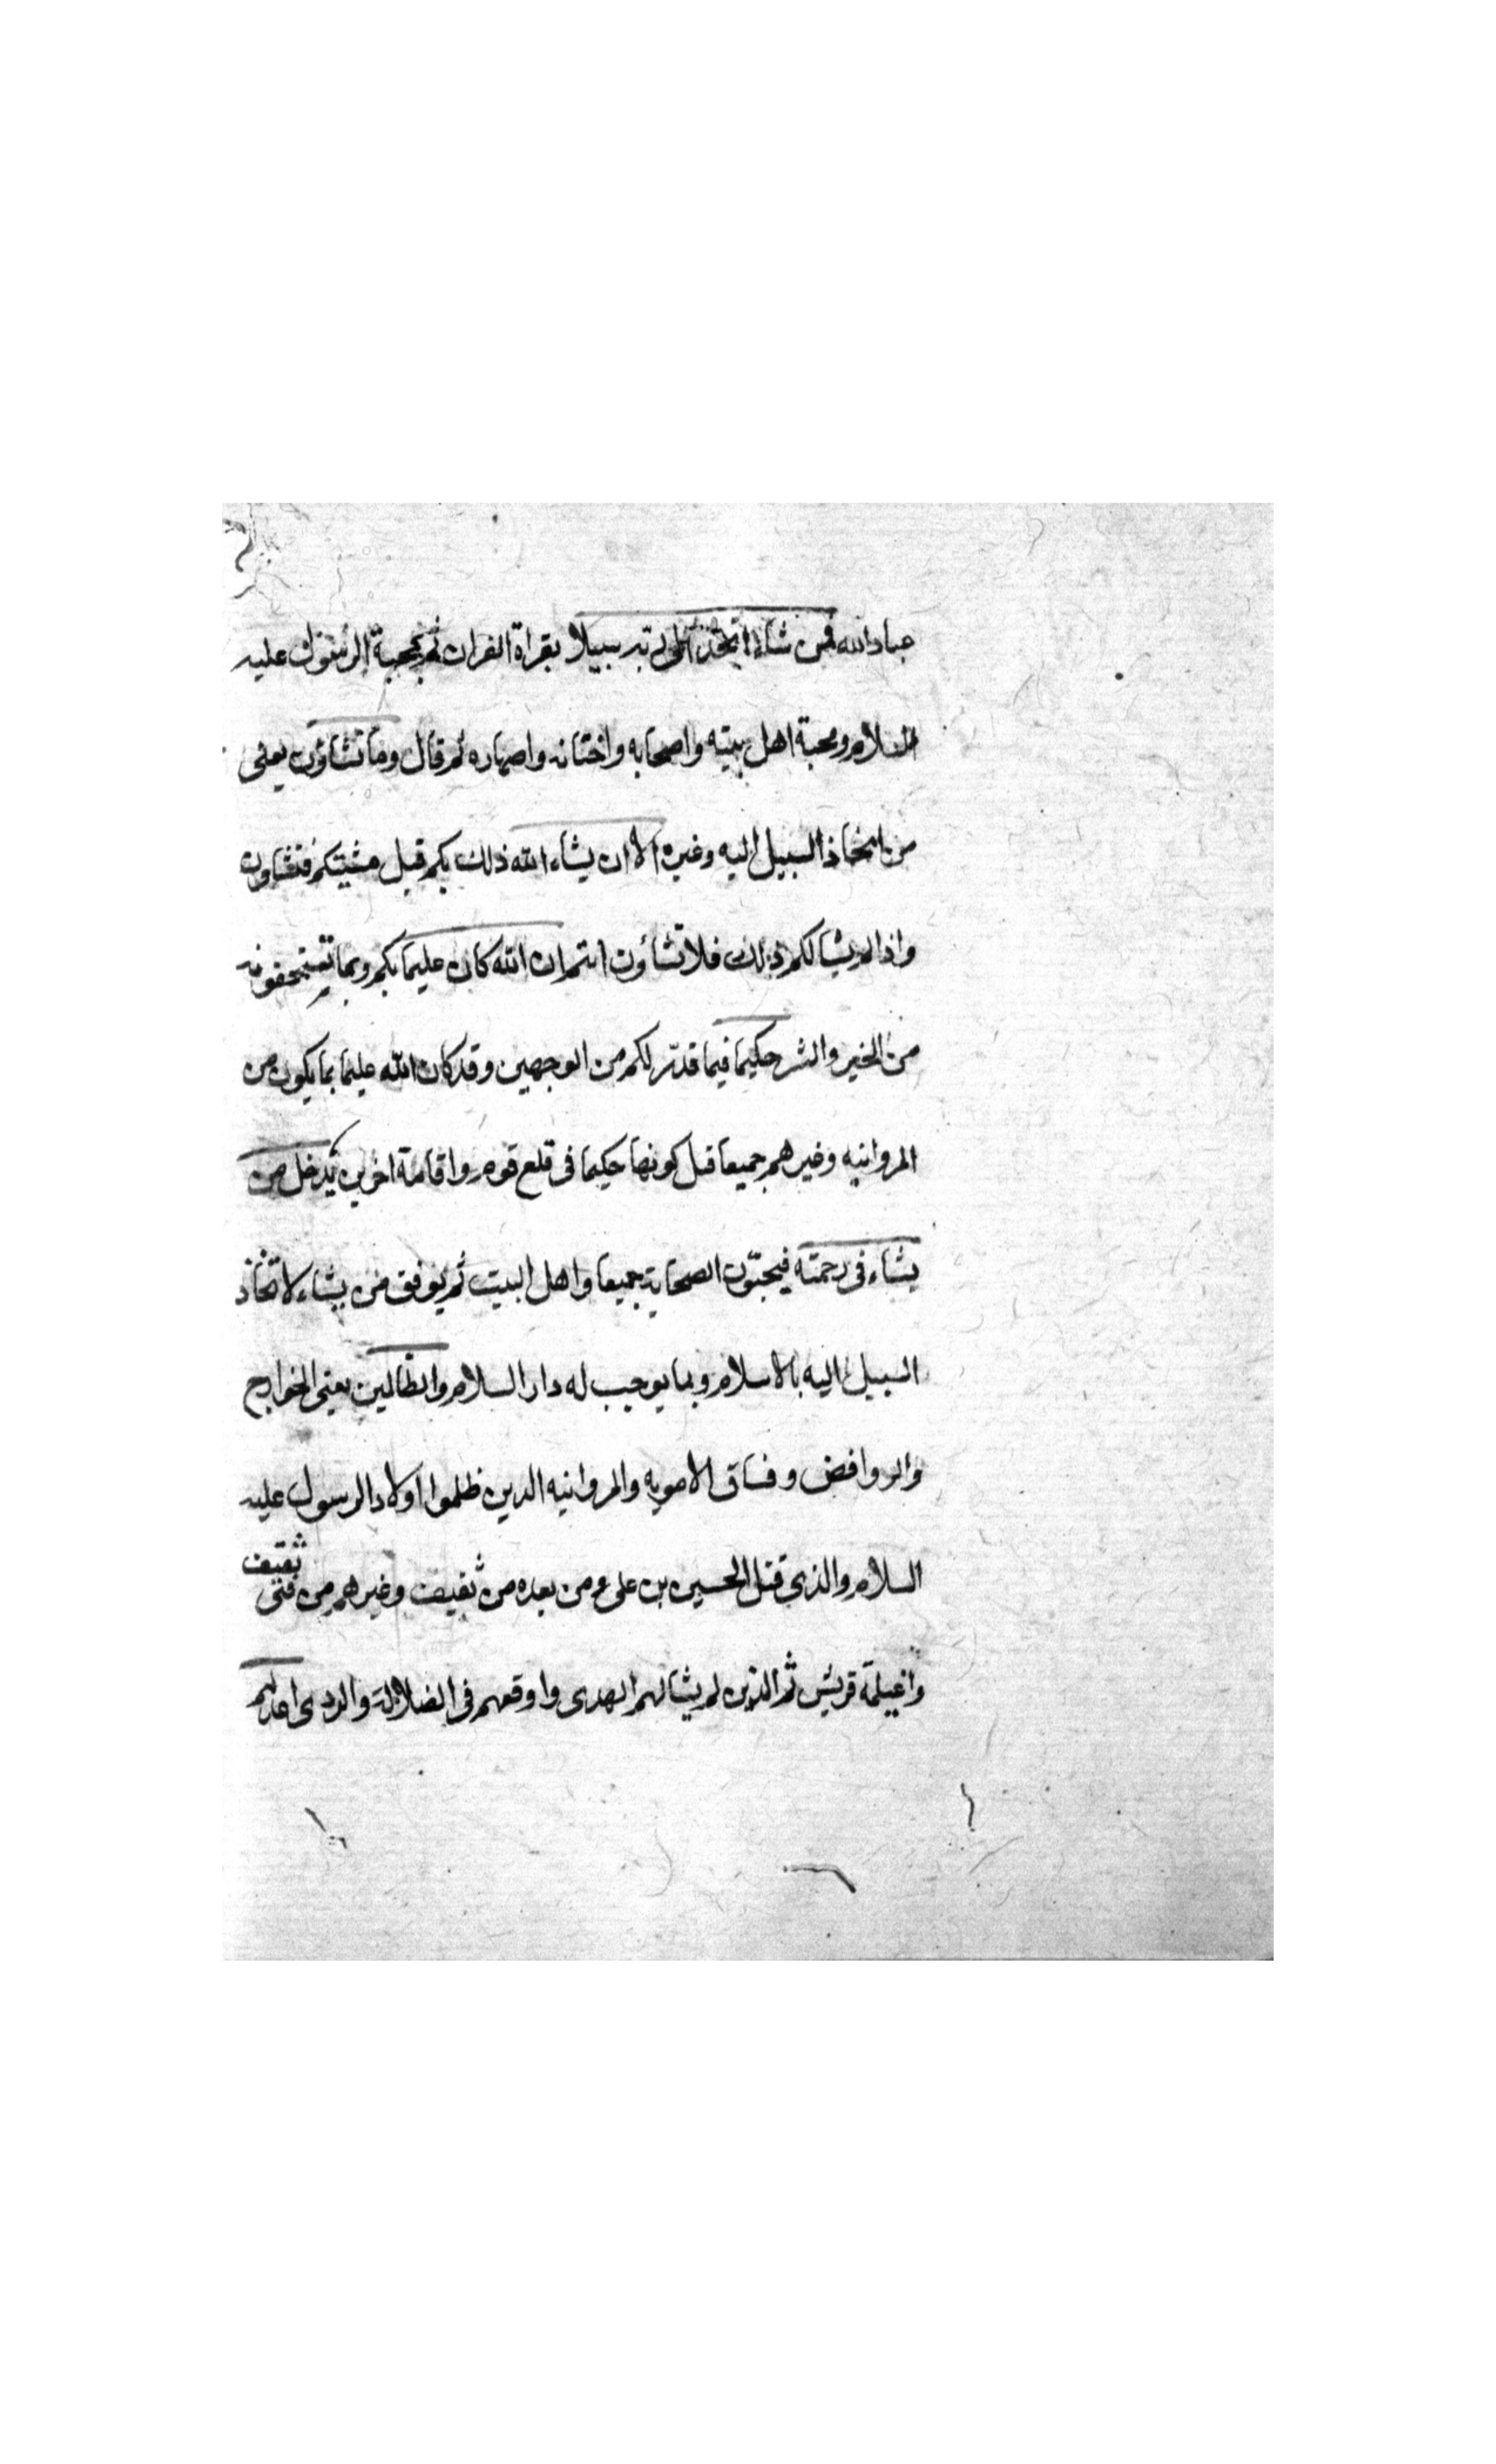 عبادالله فمن شاء اتخذ الى ربه سبيلا بقراة القران ثم بمحبة الرسول عليه
السلام ومحبة اهل بيته واصحابه واختانه واصهاره ثم قال وما تشاؤن يعنى
من اتخاذ السبيل اليه وغيره الا ان يشاء الله ذلك بكم قبل مشيتكم فتشاون
واذا لم يشا لكم ذلك فلا تشاؤن انتم ان الله كان عليما بكم وبما تستحقونه
من الخير والشر حكيما فيما قدّر لكم من الوجهين وقد كان الله عليما بما يكون من
المروانيه وغيرهم جميعا قبل كونها حكيما فى قلع قوم واقامة اخرين يدخل من
يشاء فى رحمته فيحبّون الصحابة جميعا واهل البيت ثم يوفق من يشاء لاتخاذ
السبيل اليه بالاسلام وبما يوجب له دار السلام والظالمين يعنى الخوارج
والروافض وفساق الامويه والمروانيه الدين ظلموا اولاد الرسول عليه
السلام والذى قتل الحسين بن على ومن بعده من ثقيف وغيرهم من فتى ثقيف
واغيلمة قريش ثم الذين لم يشا لهم الهدى واوقعهم فى الضلالة والردى اعد لهم